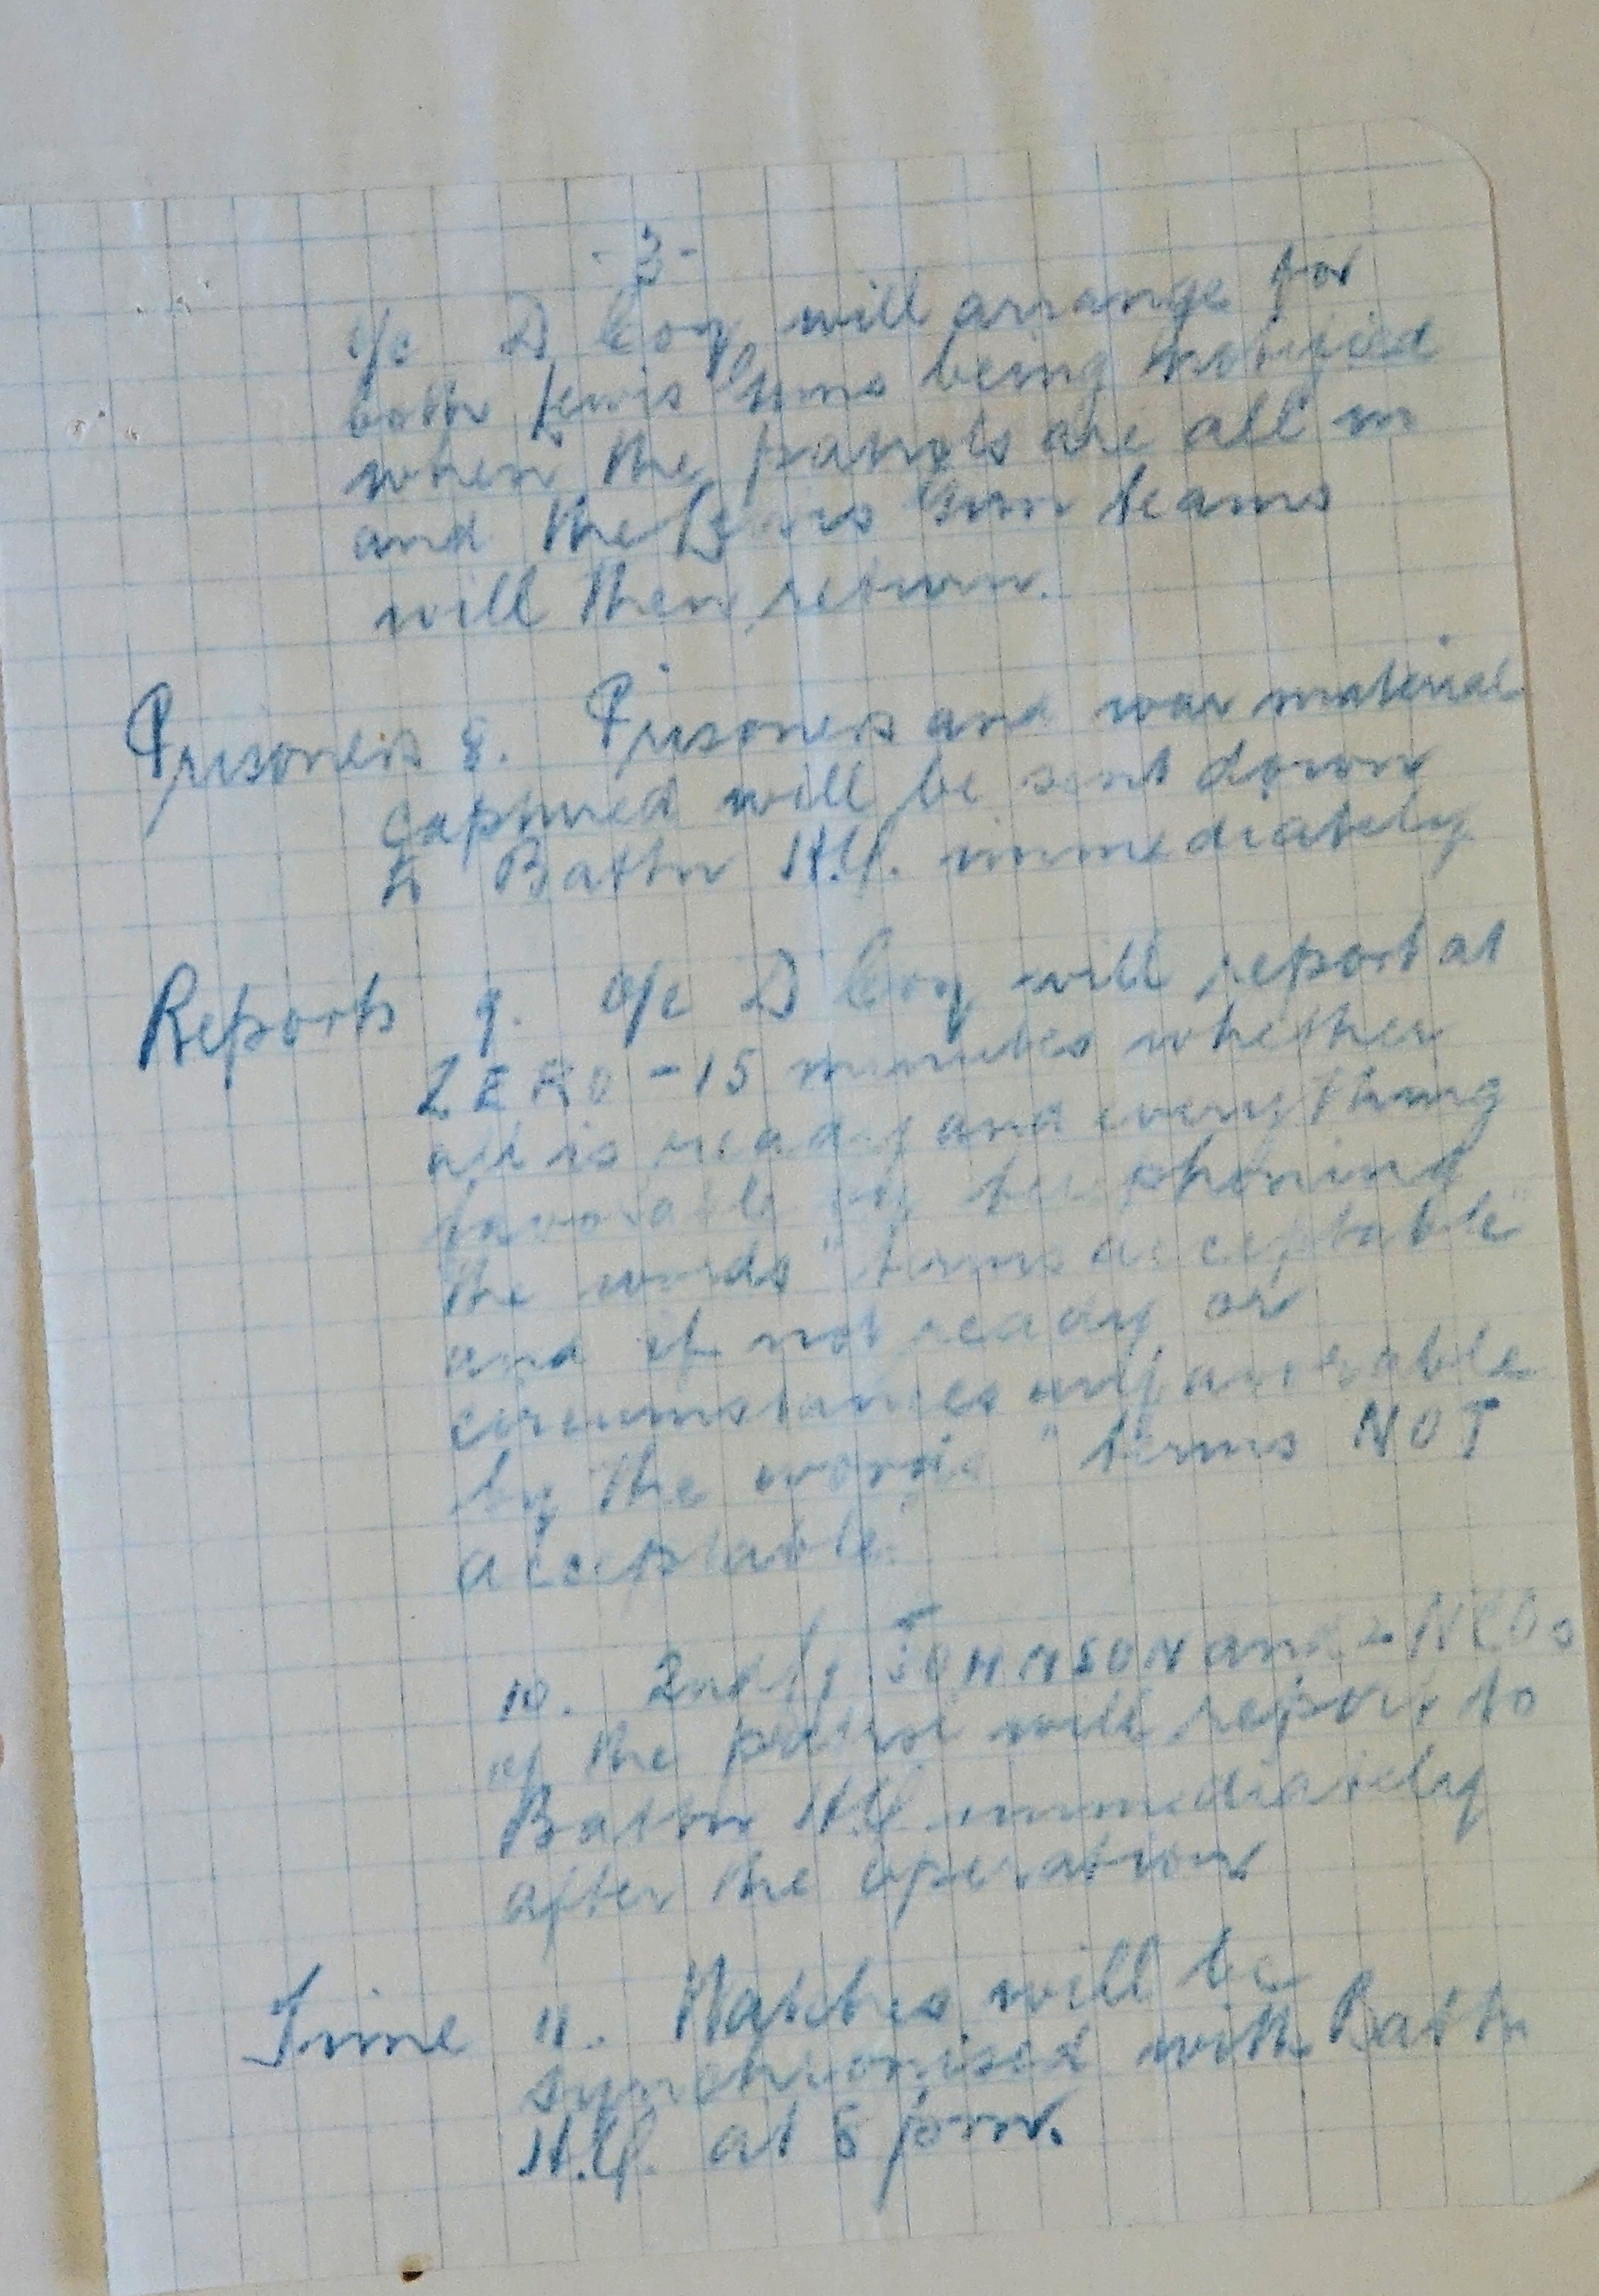 - 3 -
o/c D Coy will arrange for
both Lewis Guns being notified
when the patrols are all in
and the Lewis Gun teams
will then return.
Prisoners 8. Prisoners and war material
captured will be sent down
to Battn H.Q. immediately
Reports 9. o/c D Coy will report at
ZERO -15 minutes whether
all is ready and everything
favorable by telephoning
the words "terms acceptable"
and if not ready or
circumstances unfavorable
by the words "terms NOT
acceptable"
10. 2nd Lt JOHNSON and 2 NCOs
of the patrol will report to
Battn H.Q. immediately
after the operation
Time 11. Watches will be
synchronised with Battn
H.Q. at 8 pm.